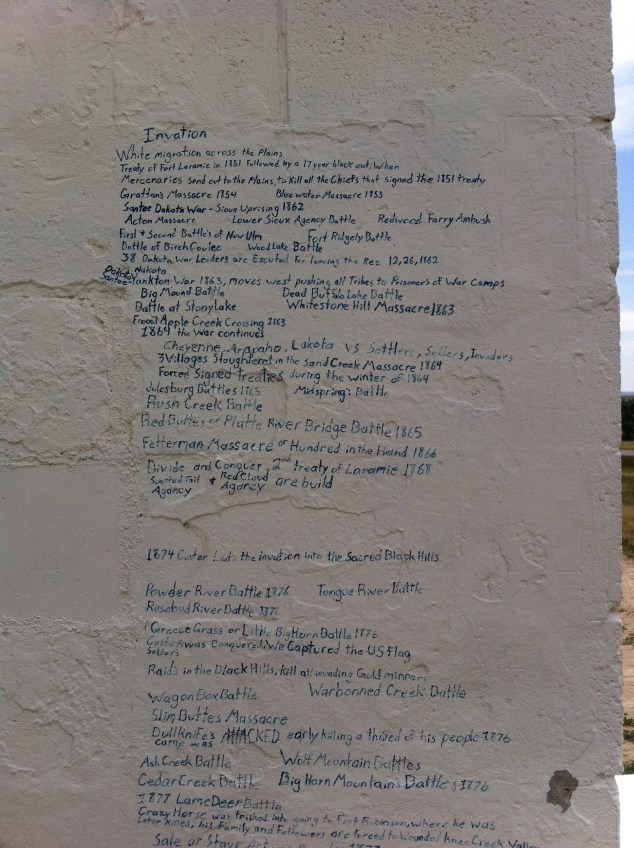 Invation
White migration across the Plains
Treaty of Fort Laramie in 1851 followed by a 17 year black out, when
Mercenaries send out to the Plains, to kill all the Chiefs that signed the 1851 treaty
Grattans Massacre 1854 Bluewater Massacre 1855
Santee Dakota War - Sioux Uprising 1862
Acton Massacre Lower Sioux Agency Battle Redwood Farry Ambush
First & Second Battle's of New Ulm Fort Ridgely Battle
Battle of Birch Coulee Wood Lake Battle
38 Dakota War Leiders are Excuted for leaving the Res 12,26,1862
Dakota Nakota
Santee Yankton War 1863, moves west pushing all Tribes to Prisoner's of War Camps
Big Mound Battle Dead Buffalo Lake Battle
Battle at Stony Lake Whitestone Hill Massacre 1863
Apple Creek Crossing 1863
1864 the War continues
Cheyenne, Arapaho, Lakota VS Settlers, Soiders, Invaders
3 Villages Sloughtered in the Sand Creek Massacre 1864
Forced Signed treaties during the winter of 1864
Julesburg Battles 1865 Midsprings Battle
Rush Creek Battle
Red Buttes or Platte River Bridge Battle 1865
Fetterman Massacre or Hundred in the Hand 1866
Divide and Conquer, 2nd treaty of Laramie 1868
Spotted Tail & Red Cloud are build
Agency Agency
1874 Custer Leads the invation into the Sacred Black Hills
Powder River Battle 1876 Tongue River Battle
Rosebud River Battle 1876
Greece Grass or Little Big Horn Battle 1876
Custer was Conquered, We Captured the US Flag
Soiders
Raids in the Black Hills, kill all invading Gold minners
Wagon Box Battle Warbonned Creek Battle
Slim Buttes Massacre
Dullknife's ATTACKED early killing a thired of his people 1876
camp was
Ash Creek Battle Wolf Mountain Battles
Cedar Creek Battle Big Horn Mountains Battles 1876
1877 Lame Deer Battle
Crazy Horse was tricked into going to Fort Robinson, where he was
Later killed, his Family and Followers are forced to Wounded Knee Creek Valley
Sale or Starve Act